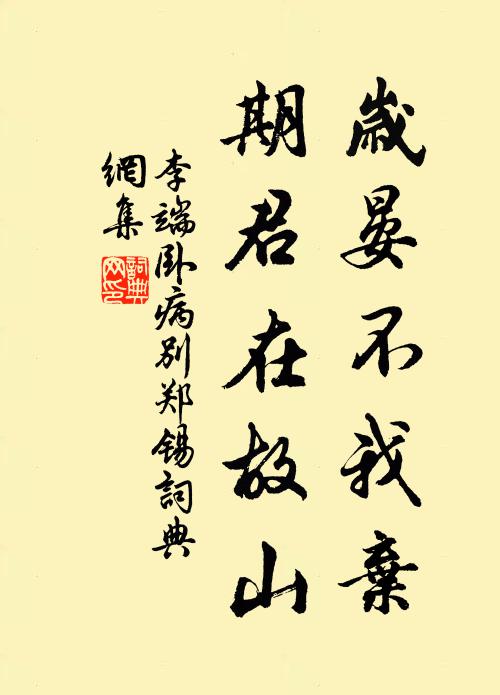 歲晏不我棄
期君在故山
李端卧病别郑锡詞典
網集
詞典
网印